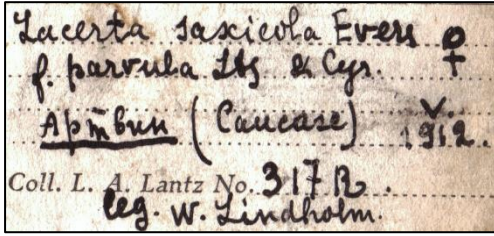 Lacerta saxicola Evers ♀
f. parvula Ltz & Cyr.
Артвин (Caucase) V. 1912.
Coll. L. A. Lantz No. 317 R.
leg. W. Lindholm.